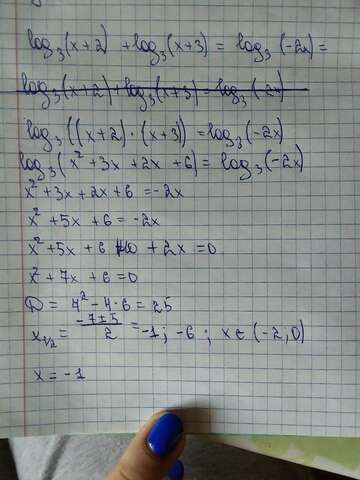 log₃(x+2) + log₃(x+3) = log₃(-2x) =
log₃(x+2) + log₃(x+3) = log₃(-2x)
log₃((x+2)·(x+3)) = log₃(-2x)
log₃(x² + 3x + 2x + 6) = log₃(-2x)
x² + 3x + 2x + 6 = -2x
x² + 5x + 6 = -2x
x² + 5x + 6 + 2x = 0
x² + 7x + 6 = 0
D = 7² - 4·6 = 25
x₁/₂ = (-7±5)/2 = -1; -6; x ∈ (-2; 0)
x = -1